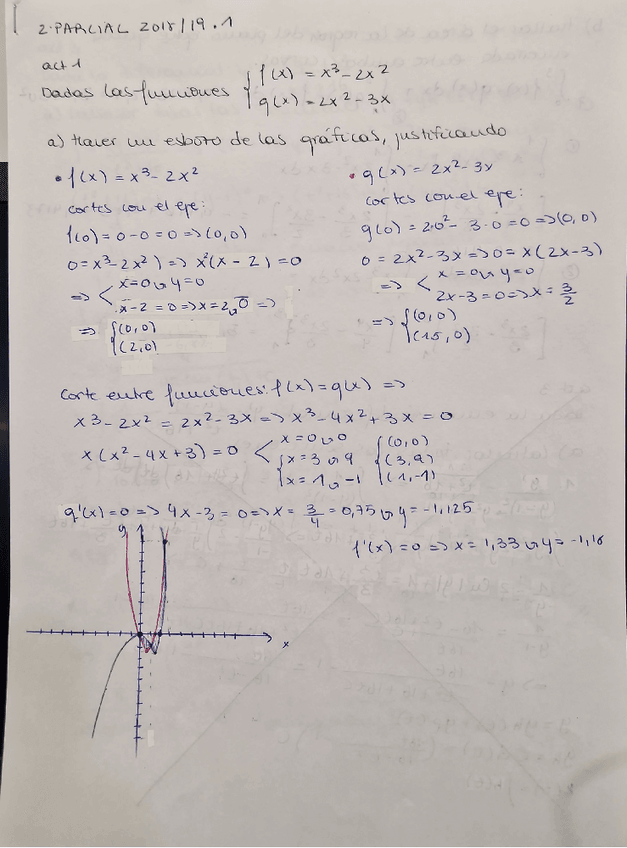 2. PARCIAL 2018/19.1
act 1
Dadas las funciones { f(x) = x³ - 2x²
g(x) = 2x² - 3x
a) Hacer un esbozo de las gráficas, justificando
• f(x) = x³ - 2x²
cortes con el eje:
f(0) = 0 - 0 = 0 => (0,0)
0 = x³ - 2x² => x²(x - 2) = 0
=> < x = 0 y = 0
x - 2 = 0 => x = 2 0 =>
=> { (0,0)
(2,0)
• g(x) = 2x² - 3x
cortes con el eje:
g(0) = 2·0² - 3·0 = 0 => (0,0)
0 = 2x² - 3x => 0 = x(2x - 3)
=> < x = 0 y = 0
2x - 3 = 0 => x = 3/2
=> { (0,0)
(1.5,0)
Corte entre funciones: f(x) = g(x) =>
x³ - 2x² = 2x² - 3x => x³ - 4x² + 3x = 0
x(x² - 4x + 3) = 0 < x = 0 0 { (0,0)
x = 3 9 (3,9)
x = 1 -1 (1,-1)
g'(x) = 0 => 4x - 3 = 0 => x = 3/4 = 0,75 y = -1,125
f'(x) = 0 => x = 1,33 y = -1,18
y
x